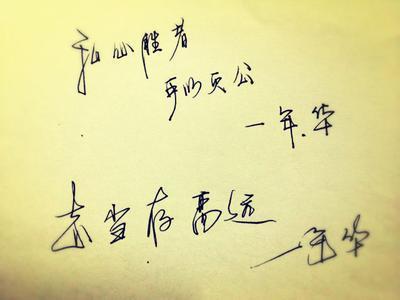 私心胜者
可以灭公
一年.华
志当存高远
一年华